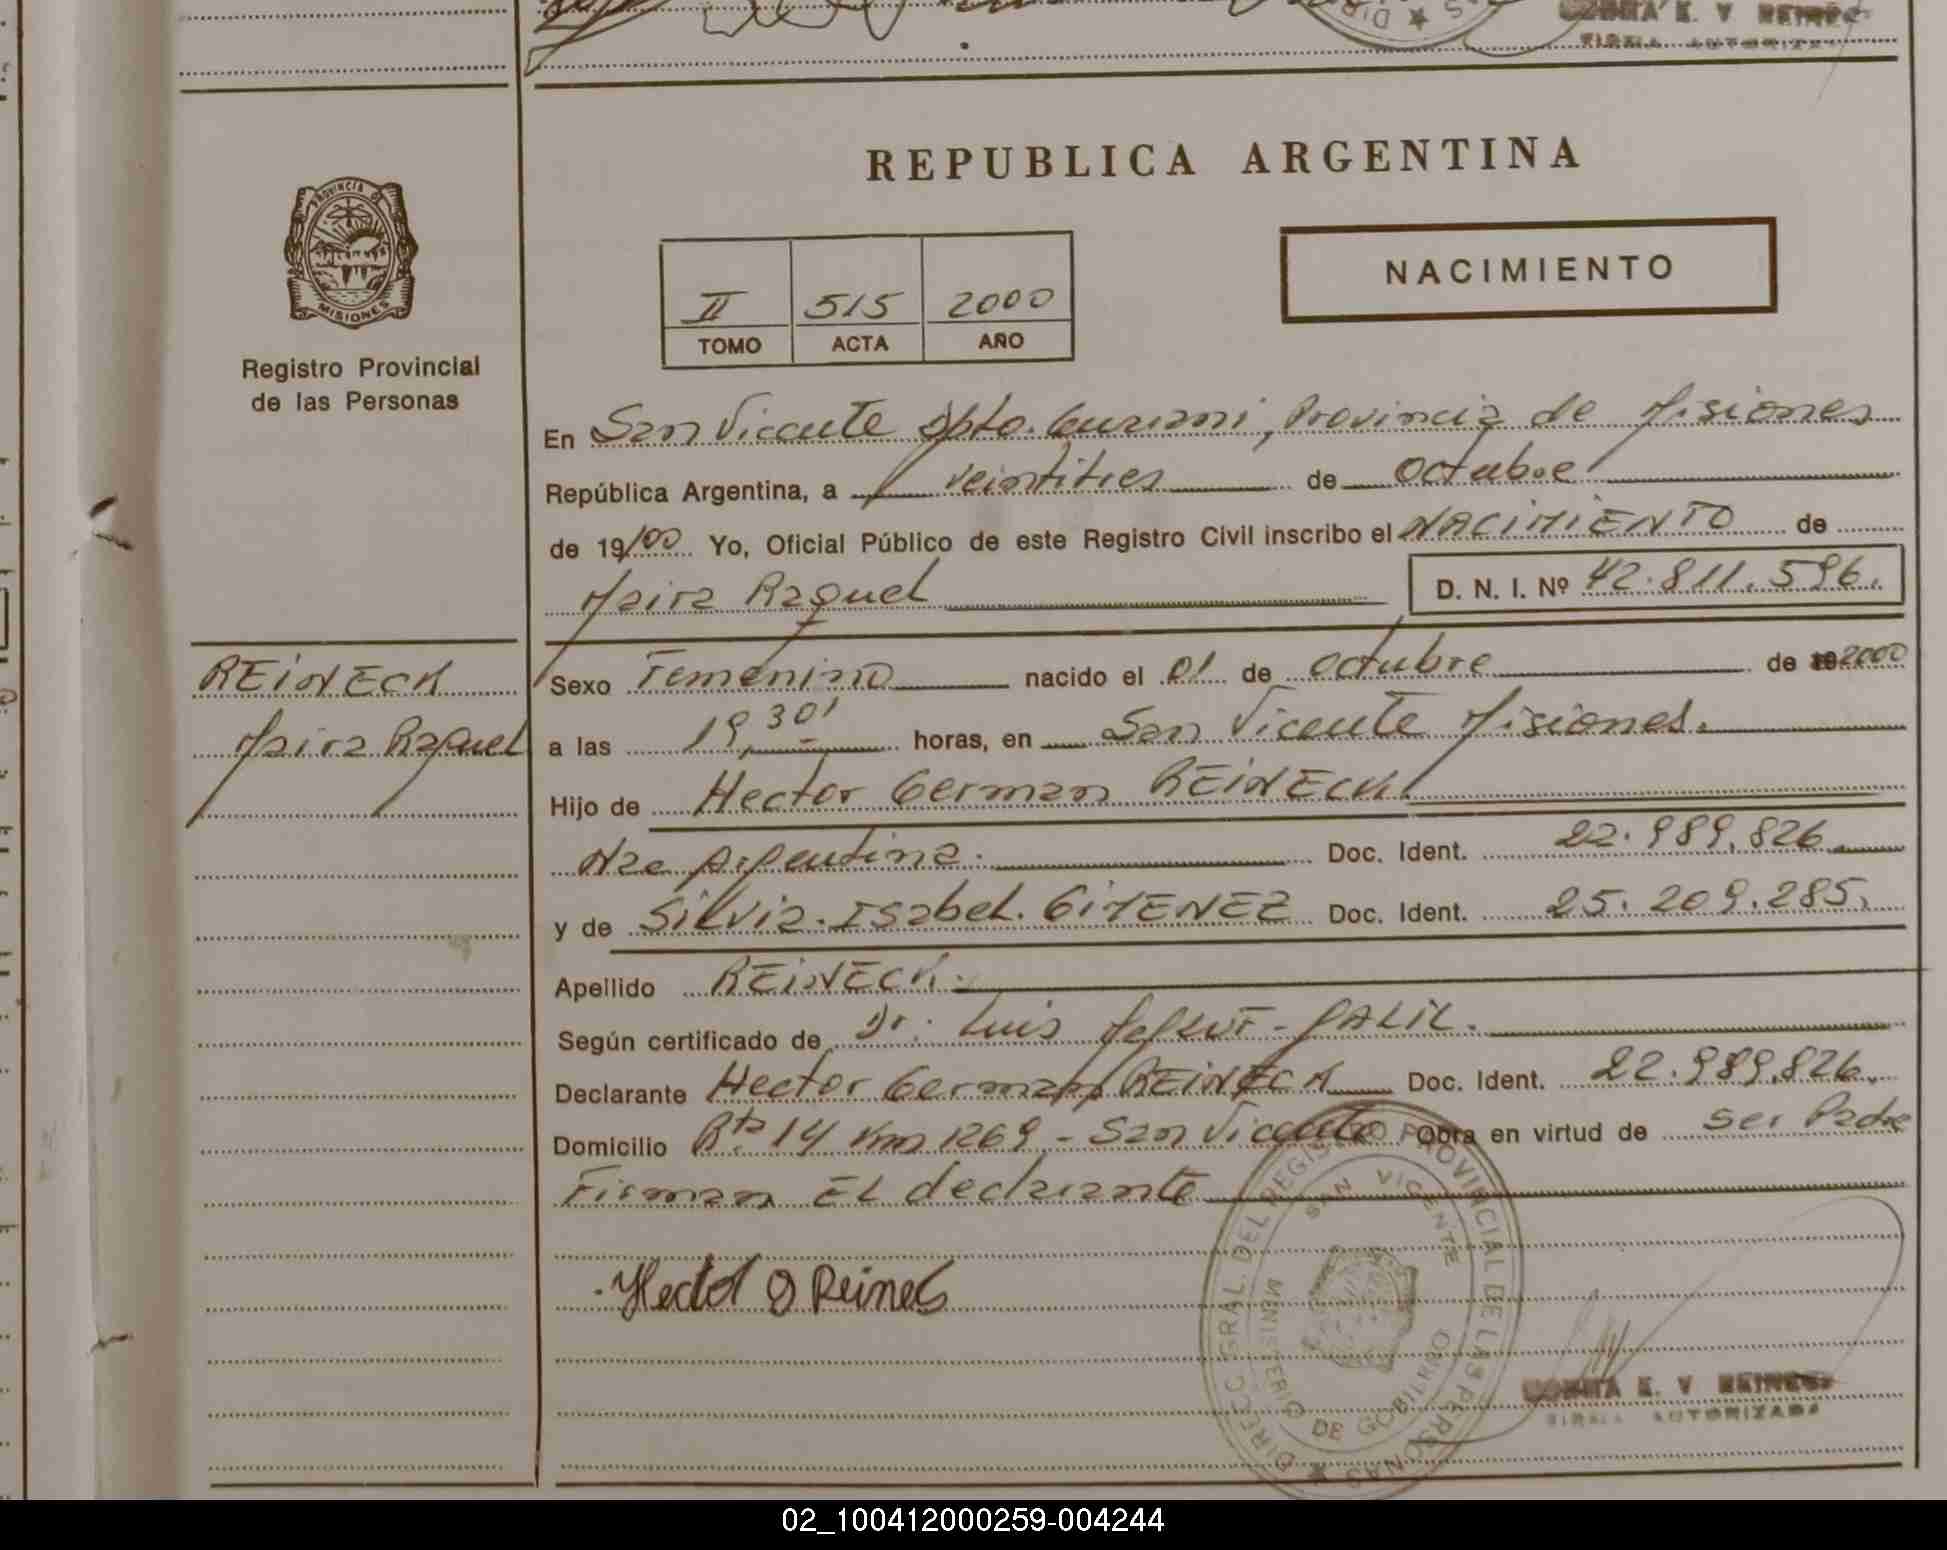 FIRMA AUTORIZADA
REPUBLICA ARGENTINA
PROVINCIA DE
MISIONES
Registro Provincial
de las Personas
II 515 2000
TOMO ACTA AÑO
NACIMIENTO
En San Vicente Dpto. Guarani, Provincia de Misiones
República Argentina, a veintitres de octubre
de 19/00 Yo, Oficial Público de este Registro Civil inscribo el NACIMIENTO de
Maira Raquel D. N. I. Nº 42.811.596.
REINECK
Maira Raquel
Sexo Femenino nacido el 01 de octubre de 2000
a las 19,30' horas, en San Vicente Misiones.
Hijo de Hector German REINECK
Nac Argentina. Doc. Ident. 22.989.826
y de Silvia Isabel. GIMENEZ Doc. Ident. 25.209.285.
Apellido REINECK.
Según certificado de Dr. Luis GALIL.
Declarante Hector German REINECK Doc. Ident. 22.989.826.
Domicilio Rta 14 Km 1269 - San Vicente Obra en virtud de ser Padre
Firman El declarante
Hector G Reineck
DIREC. GRAL. DEL REGISTRO PROVINCIAL DE LAS PERSONAS
SAN VICENTE
MINISTERIO DE GOBIERNO
FIRMA AUTORIZADA
02_100412000259-004244